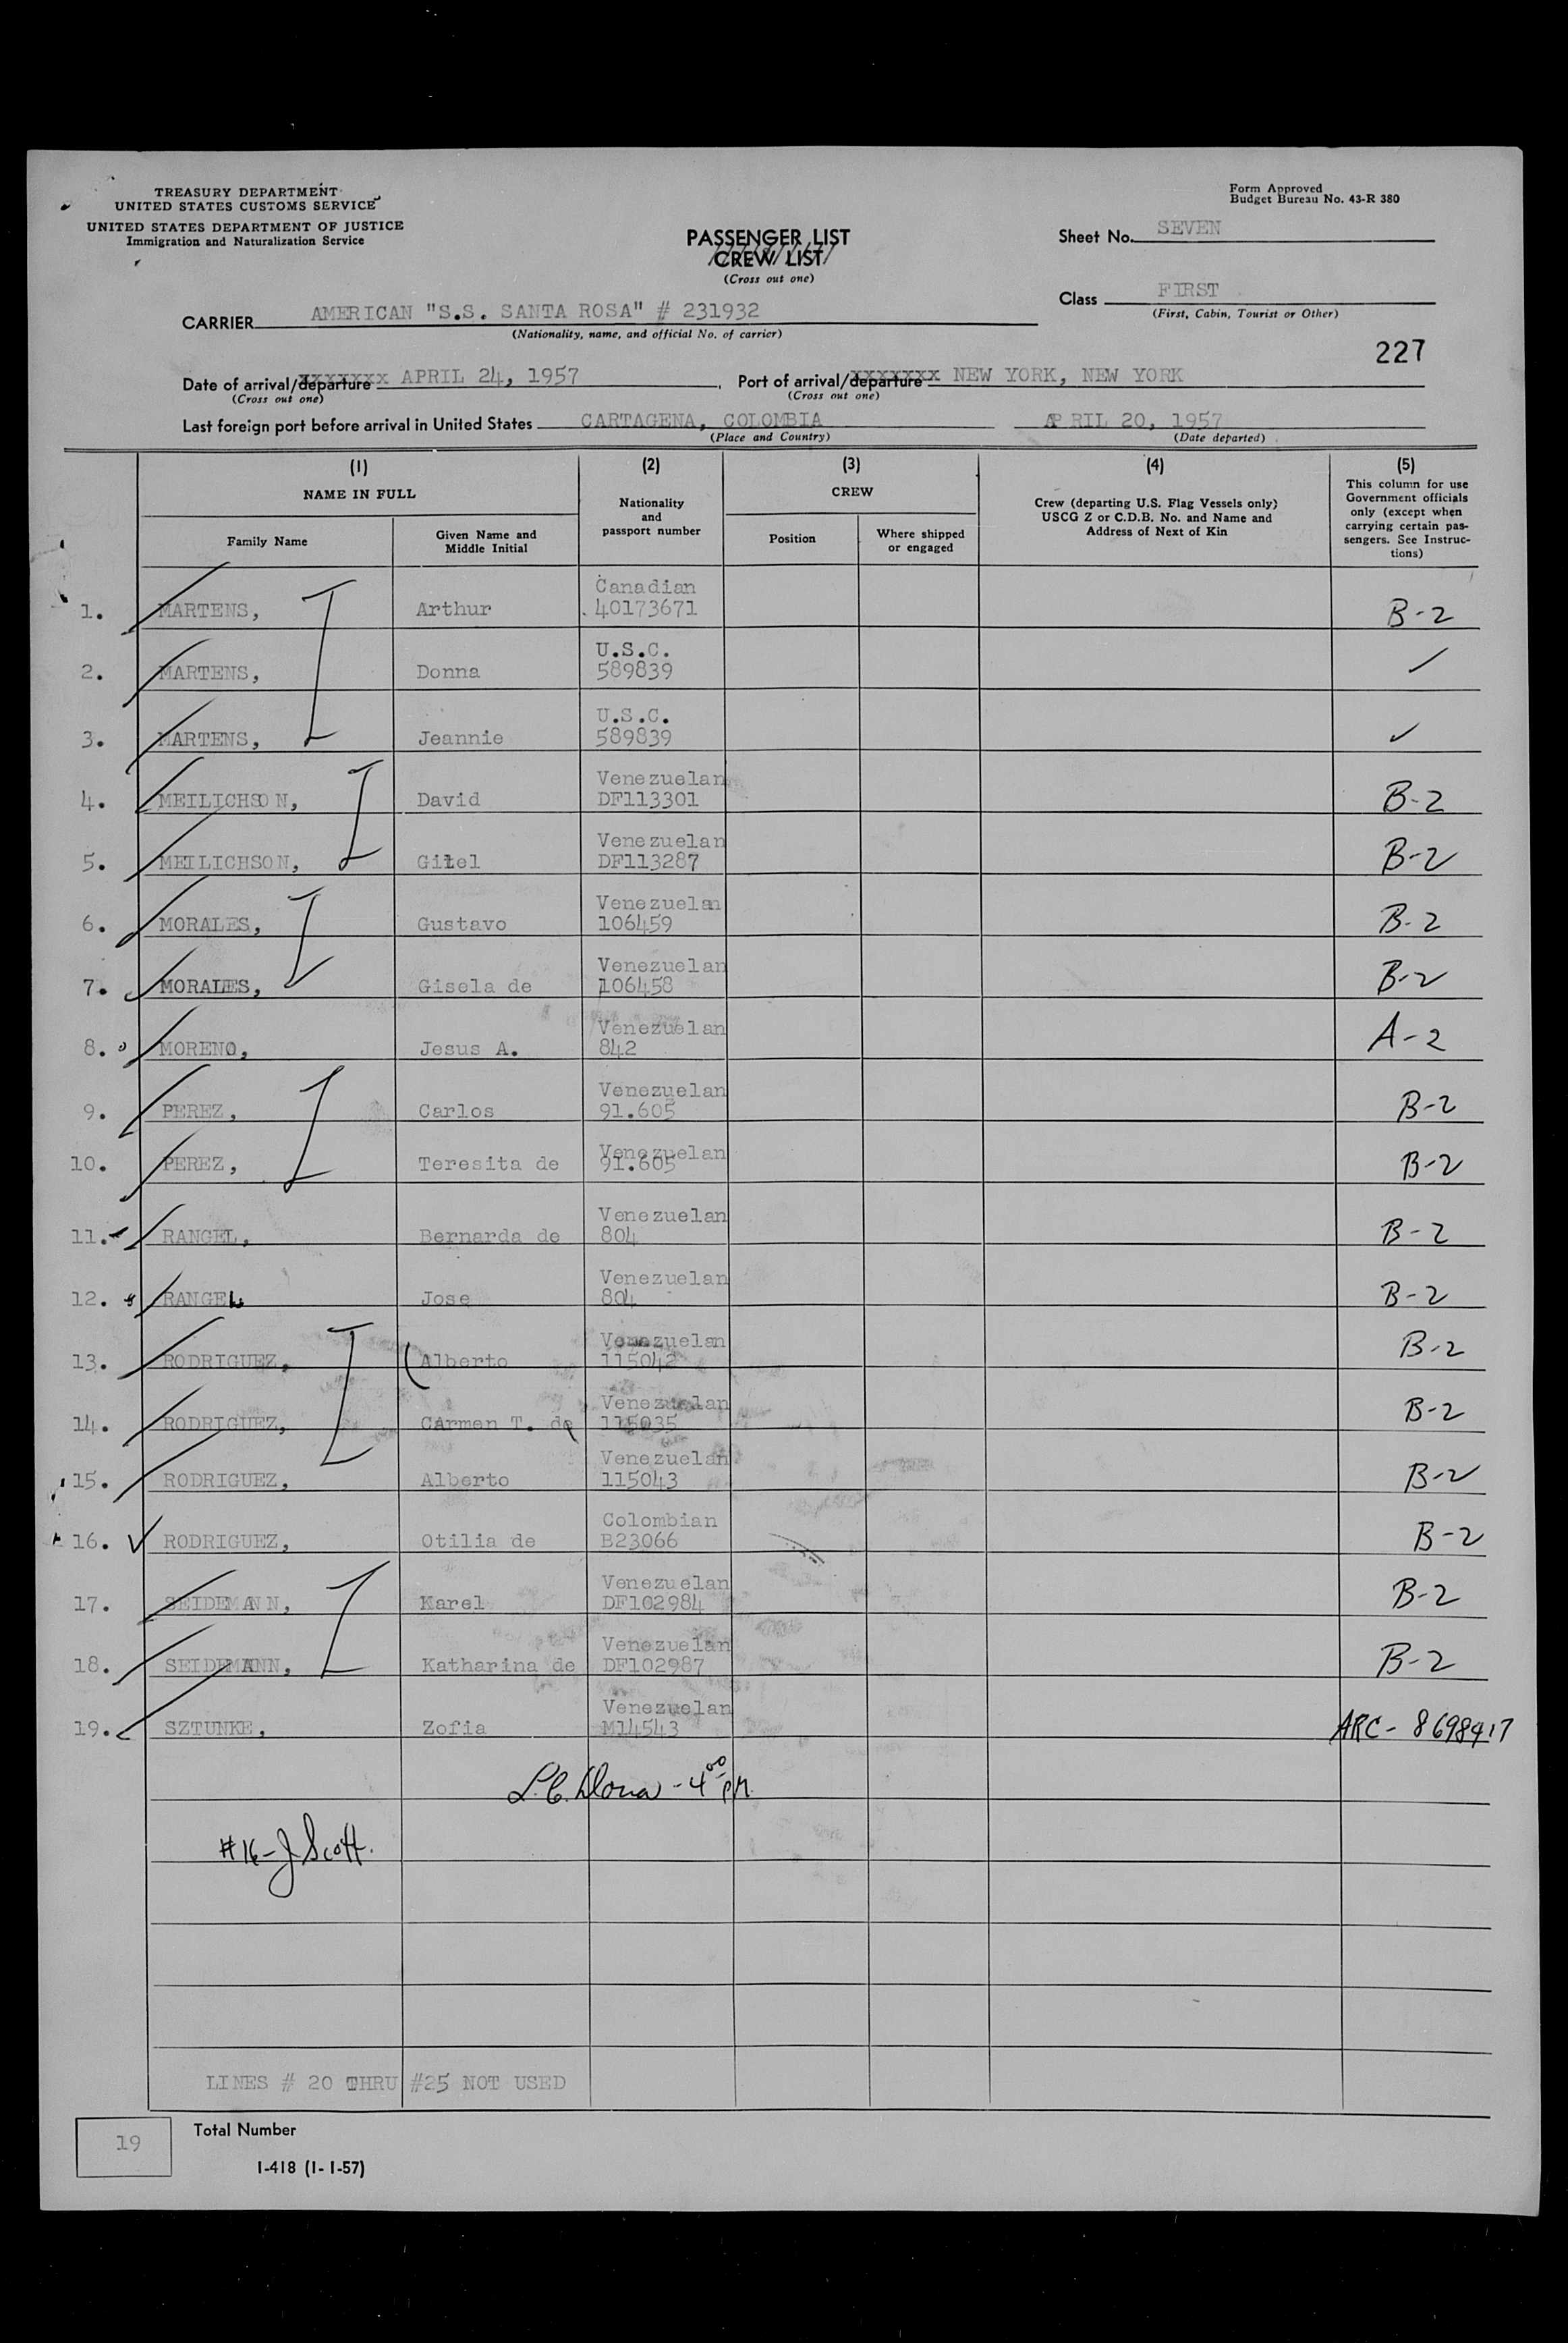 TREASURY DEPARTMENT
UNITED STATES CUSTOMS SERVICE
UNITED STATES DEPARTMENT OF JUSTICE
Immigration and Naturalization Service
Form Approved
Budget Bureau No. 43-R 380
PASSENGER LIST
CREW LIST
(Cross out one)
Sheet No. SEVEN
Class FIRST
(First, Cabin, Tourist or Other)
CARRIER AMERICAN "S.S. SANTA ROSA" # 231932
(Nationality, name, and official No. of carrier)
227
Date of arrival/departure APRIL 24, 1957, Port of arrival/departure NEW YORK, NEW YORK
(Cross out one) (Cross out one)
Last foreign port before arrival in United States CARTAGENA, COLOMBIA APRIL 20, 1957
(Place and Country) (Date departed)
(1) (2) (3) (4) (5)
NAME IN FULL
Family Name
Given Name and
Middle Initial
Nationality
and
passport number
CREW
Position
Where shipped
or engaged
Crew (departing U.S. Flag Vessels only)
USCG Z or C.D.B. No. and Name and
Address of Next of Kin
This column for use
Government officials
only (except when
carrying certain pas-
sengers. See Instruc-
tions)
Canadian
1. MARTENS, Arthur 40173671 B-2
U.S.C.
2. MARTENS, Donna 589839 ✓
U.S.C.
3. MARTENS, Jeannie 589839 ✓
Venezuelan
4. MEILICHSON, David DF113301 B-2
Venezuelan
5. MEILICHSON, Gitel DF113287 B-2
Venezuelan
6. MORALES, Gustavo 106459 B-2
Venezuelan
7. MORALES, Gisela de 106458 B-2
Venezuelan
8. MORENO, Jesus A. 842 A-2
Venezuelan
9. PEREZ, Carlos 91.605 B-2
Venezuelan
10. PEREZ, Teresita de 91.605 B-2
Venezuelan
11. RANGEL, Bernarda de 804 B-2
Venezuelan
12. RANGEL Jose 804 B-2
Venezuelan
13. RODRIGUEZ, Alberto 115042 B-2
Venezuelan
14. RODRIGUEZ, CArmen T. de 115035 B-2
Venezuelan
15. RODRIGUEZ, Alberto 115043 B-2
Colombian
16. RODRIGUEZ, Otilia de B23066 B-2
Venezuelan
17. SEIDEMANN, Karel DF102984 B-2
Venezuelan
18. SEIDEMANN, Katharina de DF102987 B-2
Venezuelan
19. SZTUNKE, Zofia M14543 ARC- 8698417
L.C. - 4 00 PM.
#16- J Scott.
LINES # 20 THRU #25 NOT USED
19 Total Number
I-418 (1-1-57)